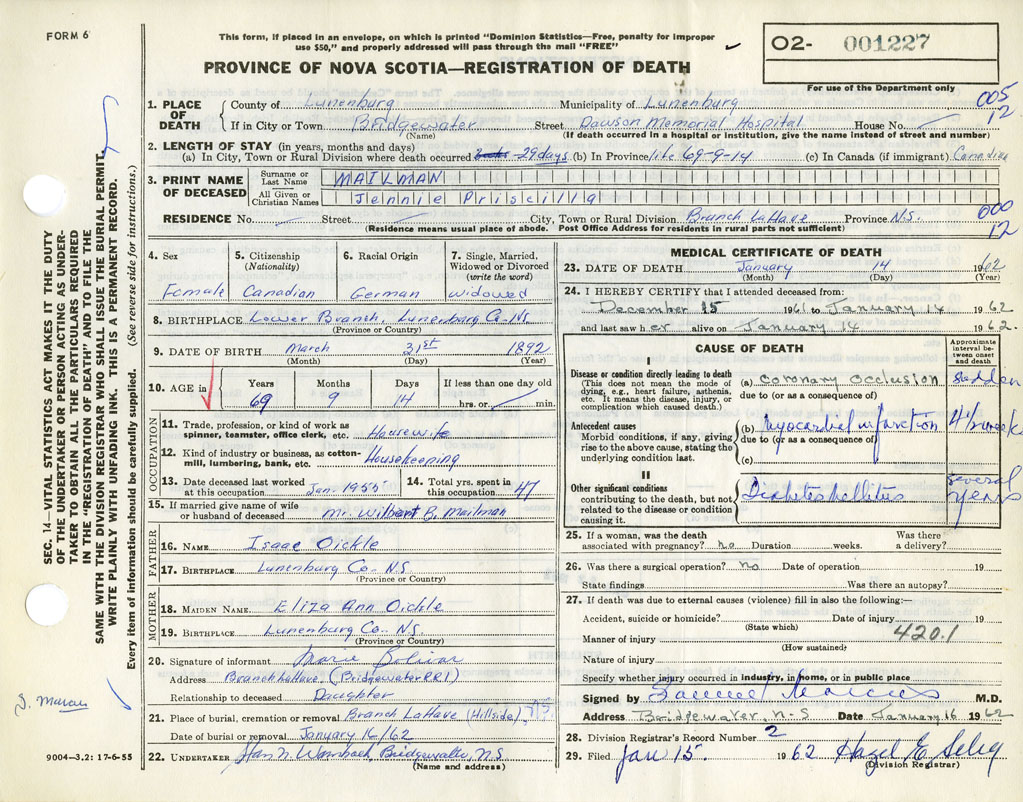 FORM 6
This form, if placed in an envelope, on which is printed "Dominion Statistics—Free, penalty for improper
use $50," and properly addressed will pass through the mail "FREE"
PROVINCE OF NOVA SCOTIA—REGISTRATION OF DEATH
02- 001227
For use of the Department only
005
12
1. PLACE OF DEATH
County of Lunenburg Municipality of Lunenburg
If in City or Town Bridgewater Street Dawson Memorial Hospital House No.
(Name) (If death occurred in a hospital or institution, give the name instead of street and number)
2. LENGTH OF STAY (in years, months and days)
(a) In City, Town or Rural Division where death occurred 29 days (b) In Province life 69-9-14 (c) In Canada (if immigrant) Canadian
3. PRINT NAME OF DECEASED
Surname or Last Name MAILMAN
All Given or Christian Names Jennie Priscilla
RESIDENCE No. Street City, Town or Rural Division Branch LaHave Province N.S.
(Residence means usual place of abode. Post Office Address for residents in rural parts not sufficient)
000
12
4. Sex
Female
5. Citizenship
(Nationality)
Canadian
6. Racial Origin
German
7. Single, Married,
Widowed or Divorced
(write the word)
widowed
8. BIRTHPLACE Lower Branch Lunenburg Co. N.S.
(Province or Country)
9. DATE OF BIRTH March 31st 1892
(Month) (Day) (Year)
10. AGE in
Years Months Days If less than one day old
69 9 14 hrs. or min.
OCCUPATION
11. Trade, profession, or kind of work as
spinner, teamster, office clerk, etc. Housewife
12. Kind of industry or business, as cotton-
mill, lumbering, bank, etc. Housekeeping
13. Date deceased last worked
at this occupation Jan. 1955
14. Total yrs. spent in
this occupation 47
15. If married give name of wife
or husband of deceased Mr. Wilbert B. Mailman
FATHER
16. NAME Isaac Oickle
17. BIRTHPLACE Lunenburg Co. N.S.
(Province or Country)
MOTHER
18. MAIDEN NAME Eliza Ann Oickle
19. BIRTHPLACE Lunenburg Co. N.S.
(Province or Country)
20. Signature of informant Marie Bolivar
Address Branch LaHave, (Bridgewater RR1)
Relationship to deceased Daughter
21. Place of burial, cremation or removal Branch LaHave (Hillside) N.S.
Date of burial or removal January 16/62
22. UNDERTAKER Bridgewater, N.S.
(Name and address)
MEDICAL CERTIFICATE OF DEATH
23. DATE OF DEATH January 14 1962
(Month) (Day) (Year)
24. I HEREBY CERTIFY that I attended deceased from:
December 15 1961 to January 14 1962
and last saw her alive on January 14 1962.
CAUSE OF DEATH
Approximate
interval be-
tween onset
and death
I
Disease or condition directly leading to death
(This does not mean the mode of
dying, e.g., heart failure, asthenia,
etc. It means the disease, injury, or
complication which caused death.)
(a) Coronary Occlusion Sudden
due to (or as a consequence of)
Antecedent causes
Morbid conditions, if any, giving
rise to the above cause, stating the
underlying condition last.
(b) Myocardial infarction
due to (or as a consequence of)
(c)
II
Other significant conditions
contributing to the death, but not
related to the disease or condition
causing it.
Diabetes Mellitus Several
Years
25. If a woman, was the death
associated with pregnancy? no Duration weeks. Was there
a delivery?
26. Was there a surgical operation? no Date of operation 19
State findings Was there an autopsy?
27. If death was due to external causes (violence) fill in also the following:—
Accident, suicide or homicide? Date of injury 19
(State which)
420.1
Manner of injury
(How sustained)
Nature of injury
Specify whether injury occurred in industry, in home, or in public place
Signed by Samuel Marcus M.D.
Address Bridgewater, N-S Date January 16 1962
28. Division Registrar's Record Number 2
29. Filed Jan 15 1962 Hazel E. Selig
(Division Registrar)
SEC. 14—VITAL STATISTICS ACT MAKES IT THE DUTY
OF THE UNDERTAKER OR PERSON ACTING AS UNDER-
TAKER TO OBTAIN ALL THE PARTICULARS REQUIRED
IN THE "REGISTRATION OF DEATH" AND TO FILE THE
SAME WITH THE DIVISION REGISTRAR WHO SHALL ISSUE THE BURIAL PERMIT.
WRITE PLAINLY WITH UNFADING INK. THIS IS A PERMANENT RECORD.
Every item of information should be carefully supplied. (See reverse side for instructions.)
S. Marcus
9004—3.2: 17-6-55